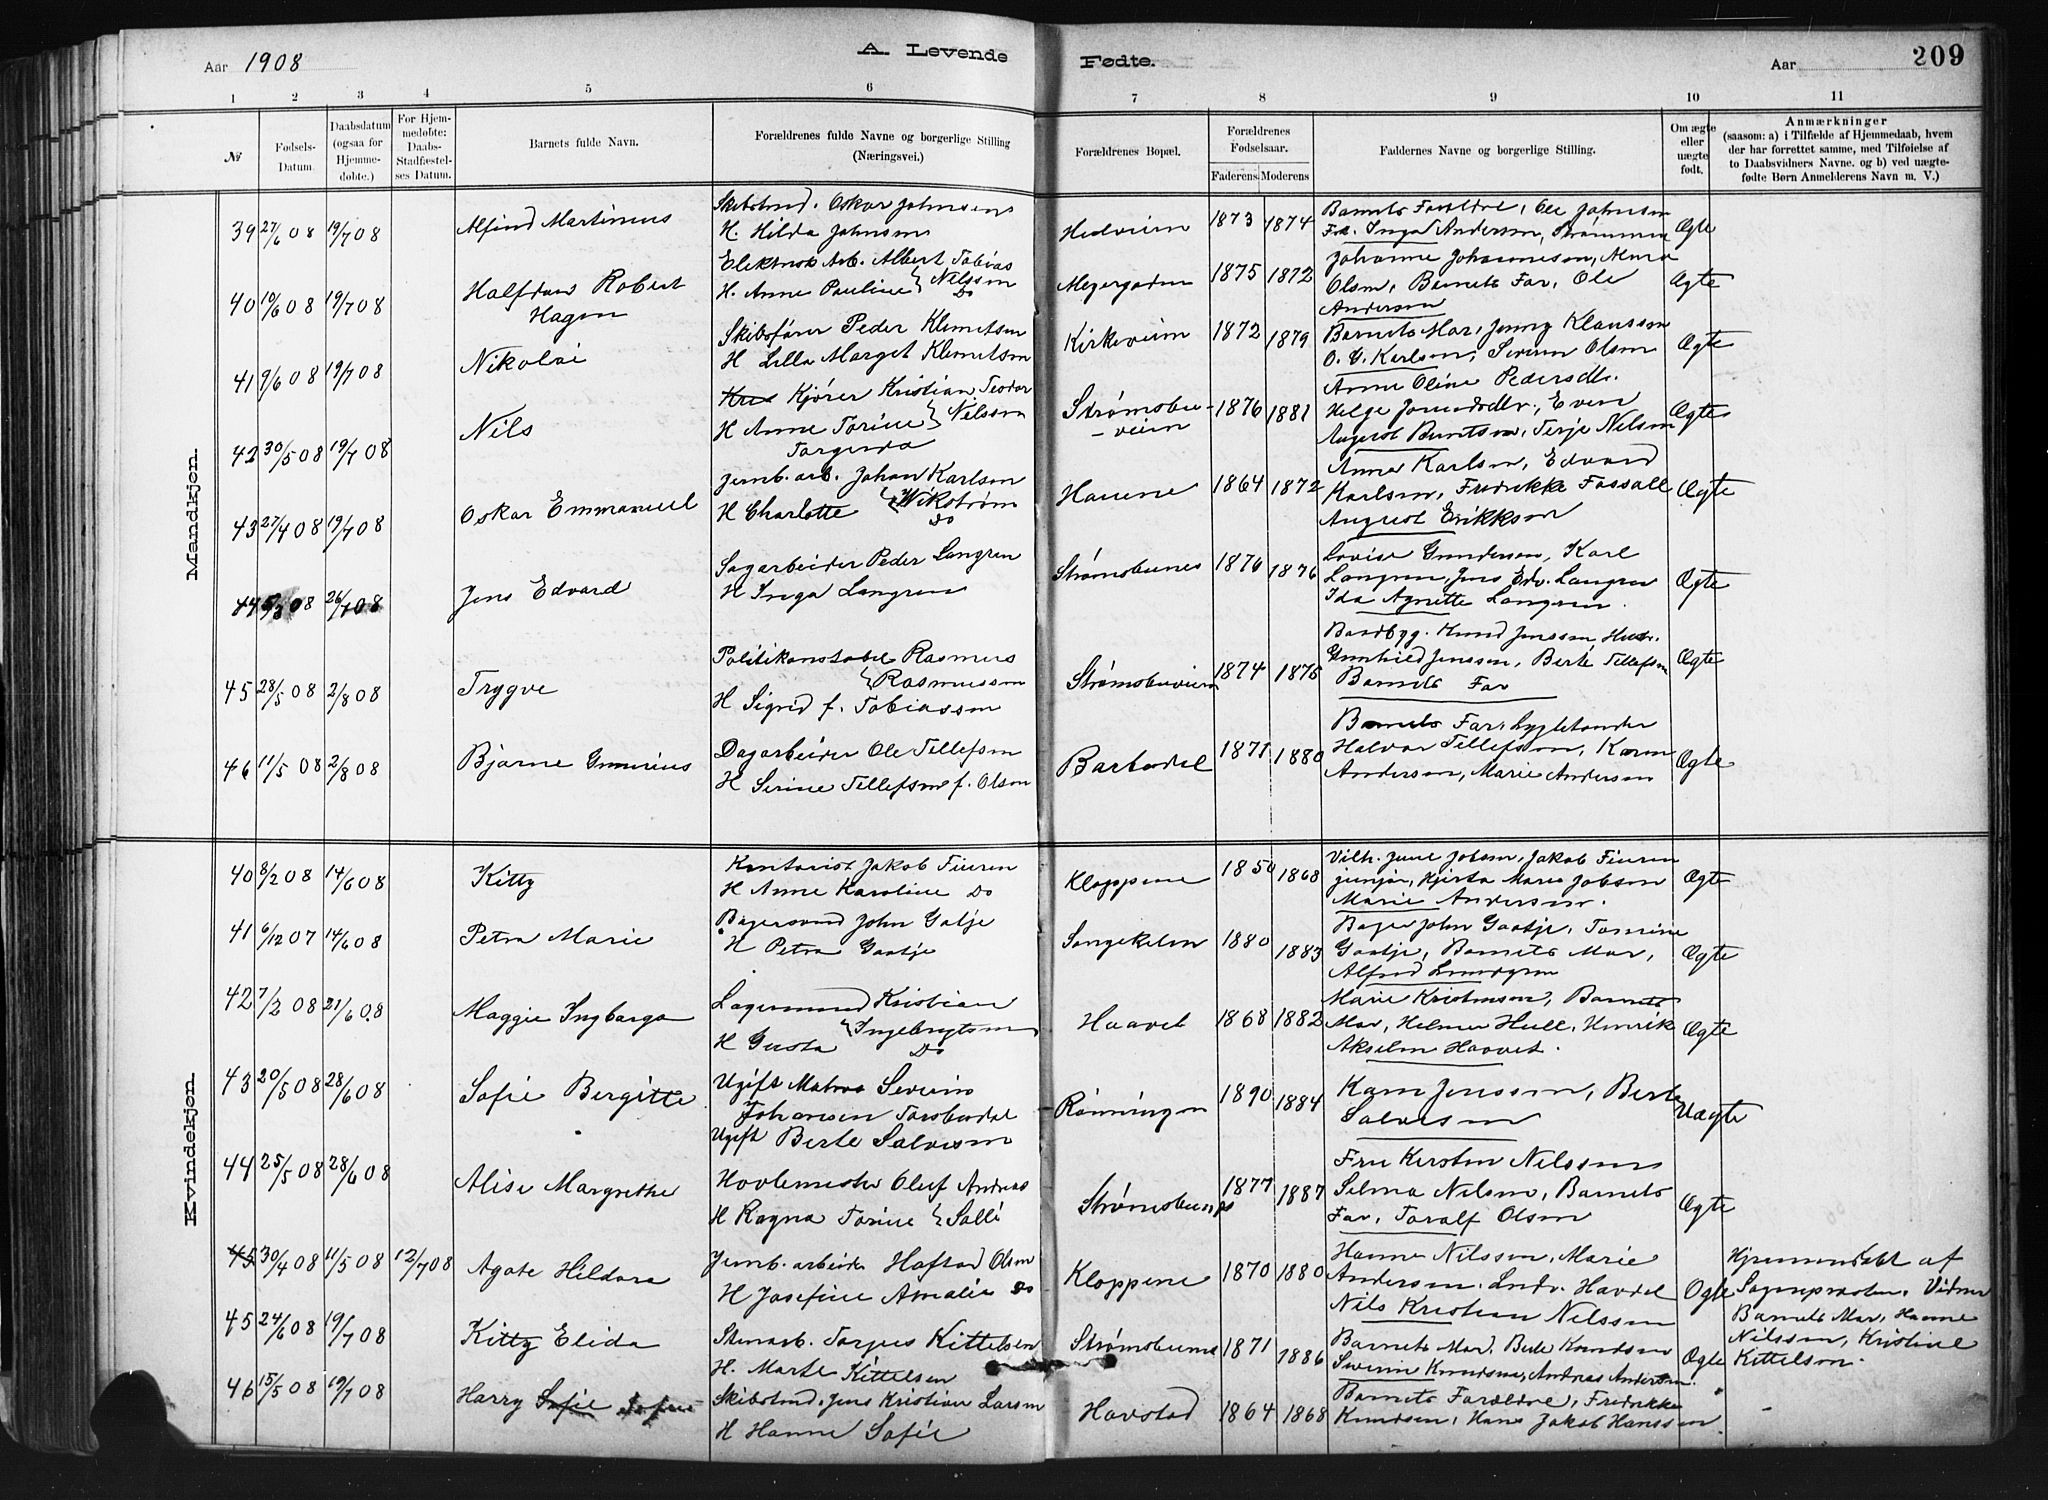 Aar 1908
A. Levende
Fødte.
Aar
209
1 2 3 4 5 6 7 8 9 10 11
№
Fødsels-
Datum.
Daabsdatum
(ogsaa for
Hjemme-
døbte.)
For Hjem-
medøbte:
Daabs-
Stadfæstel-
ses Datum.
Barnets fulde Navn.
Forældrenes fulde Navne og borgerlige Stilling
(Næringsvei.)
Forældrenes Bopæl.
Forældrenes
Fødselsaar.
Faderens Moderens
Faddernes Navne og borgerlige Stilling.
Om ægte
eller
uægte
født.
Anmærkninger
(saasom: a) i Tilfælde af Hjemmedaab, hvem
der har forrettet samme, med Tilføielse af
to Daabsvidners Navne. og b) ved uægte-
fødte Børn Anmelderens Navn m. V.)
Mandkjøn.
39 27/6 08 19/7 08 Alfind Martinius
Skibstmd. Oskar Johnsen
H Hilda Johnsen
1873 1874
Barnets Forældre, Ole Johnsen
Fr. Inga Anderson,
Ægte
40 19/6 08 19/7 08 Halfdan Robert
Hagen
Elektrisk Arb. Albert Tobias
H. Anne Pauline } Nilsson
Do
1875 1872
Johanne Johannesen,
Olsen, Barnets Far, Ole
Anderson
Ægte
41 9/6 08 19/7 08 Nikolai
Skibsfører Peder Klemetsen
H Lilla Marget Klemetsen
Kirkeveien 1872 1879
Barnets Mor, Jenny Klausson
O. G. Karlson, Olsen
Ægte
42 30/5 08 19/7 08 Nils
Kjører Kristian Teodor
H Anne Torine } Nilsson
Strømsbu-
veien
1876 1881
Anne Oline Pedersdtr.
Helge Even
August Berntsen, Terje Nilsen
Ægte
43 27/4 08 19/7 08 Oskar Emmanuel
Jernb. arb. Johan Karlson
H Charlotte } Wikstrøm
Do
1864 1872
Anna Karlson, Edvard
Karlson, Fredrikke Fossall
August Erikkson
Ægte
44 08 26/7 08 Jens Edvard
Sagarbeider Peder Langren
H Inga Langren
Strømsbunes 1876 1876
Lovise Gunderson, Karl
Langren, Jens Edv. Langren
Ida Agnette Langren.
Ægte
45 28/5 08 2/8 08 Trygve
Politikonstabel Rasmus
} Rasmusson
H Sigrid f. Tobiasson
Strømsbuveien 1874 1875
Baadbyg. Knud Jensson Hustr.
Gunhild Jensson, Berte Tellefsen
Barnets Far
Ægte
46 11/5 08 2/8 08 Bjarne
Dagarbeider Ole Tellefsen
H Serine Tellefsen f. Olson
Barbudal 1871 1880
Barnets Far,
Halvor Tellefson, Karen
Anderson, Marie Anderson
Ægte
Kvindekjøn.
40 8/2 08 14/6 08 Kitty
Kontorist Jakob Fiuren
H Anne Karoline Do
Kloppene 1850 1868
Vilh. Juul Jobson, Jakob Fiuren
junior, Marie Jobson
Marie Anderson.
Ægte
41 6/12 07 14/6 08 Petra Marie
Bagersvend John Gatje
H Petra Gaatje
Songekleiva 1880 1883
Bager John Gaatje, Tomine
Gaatje, Barnets Mor,
Alfred Lundgren
Ægte
42 7/2 08 21/6 08 Maggie Ingbarga
Lagermand Kristian
} Ingebrigtsen
H Gusta Do
Haavet 1868 1882
Marie Kristensen, Barnets
Mor, Helmer Hull, Henrik
Akselm Haavet.
Ægte
43 20/5 08 28/6 08 Sofie Bergitte
Ugift Matros Severin
Johansen Torsbudal
Ugift Berte Salveson
Rønningen 1890 1884
Karen Jensson, Berte
Salveson
Uægte
44 25/5 08 28/6 08 Alise Margrethe
Høvlemester Oluf Andreas
H Ragna Torine } Solli
Strømsbunes 1877 1887
Fru Kirsten Nilsson
Selma Nilsen, Barnets
Far, Toralf Olsen
Ægte
45 30/4 08 11/5 08 12/7 08 Agate Hildora
Jernb. arbeider Haftod Olsen
H Josefine Amalie Do
Kloppene 1870 1880
Hanna Nilsson, Marie
Anderson, Havdel
Nils Kristian Nilsson
Ægte
Hjemmedøbt af
Sogneprosten. Vidner
Barnets Mor, Hanne
Nilsson, Kristine
Kittelson.
45 24/6 08 19/7 08 Kitty Elida
Stenarb. Torjus Kittelsen
H. Marte Kittelsen
Strømsbunes 1871 1886
Barnets Mor, Berte Knudsen
Severin Knudsen, Andreas Anderson.
Ægte
46 15/5 08 19/7 08 Harry Sofie
Skibstmd. Jens Kristian Larsen
H Hanne Sofie
Havstad 1864 1868
Barnets Forældre, Fredrikke
Knudsen, Hans Jakob Hansson.